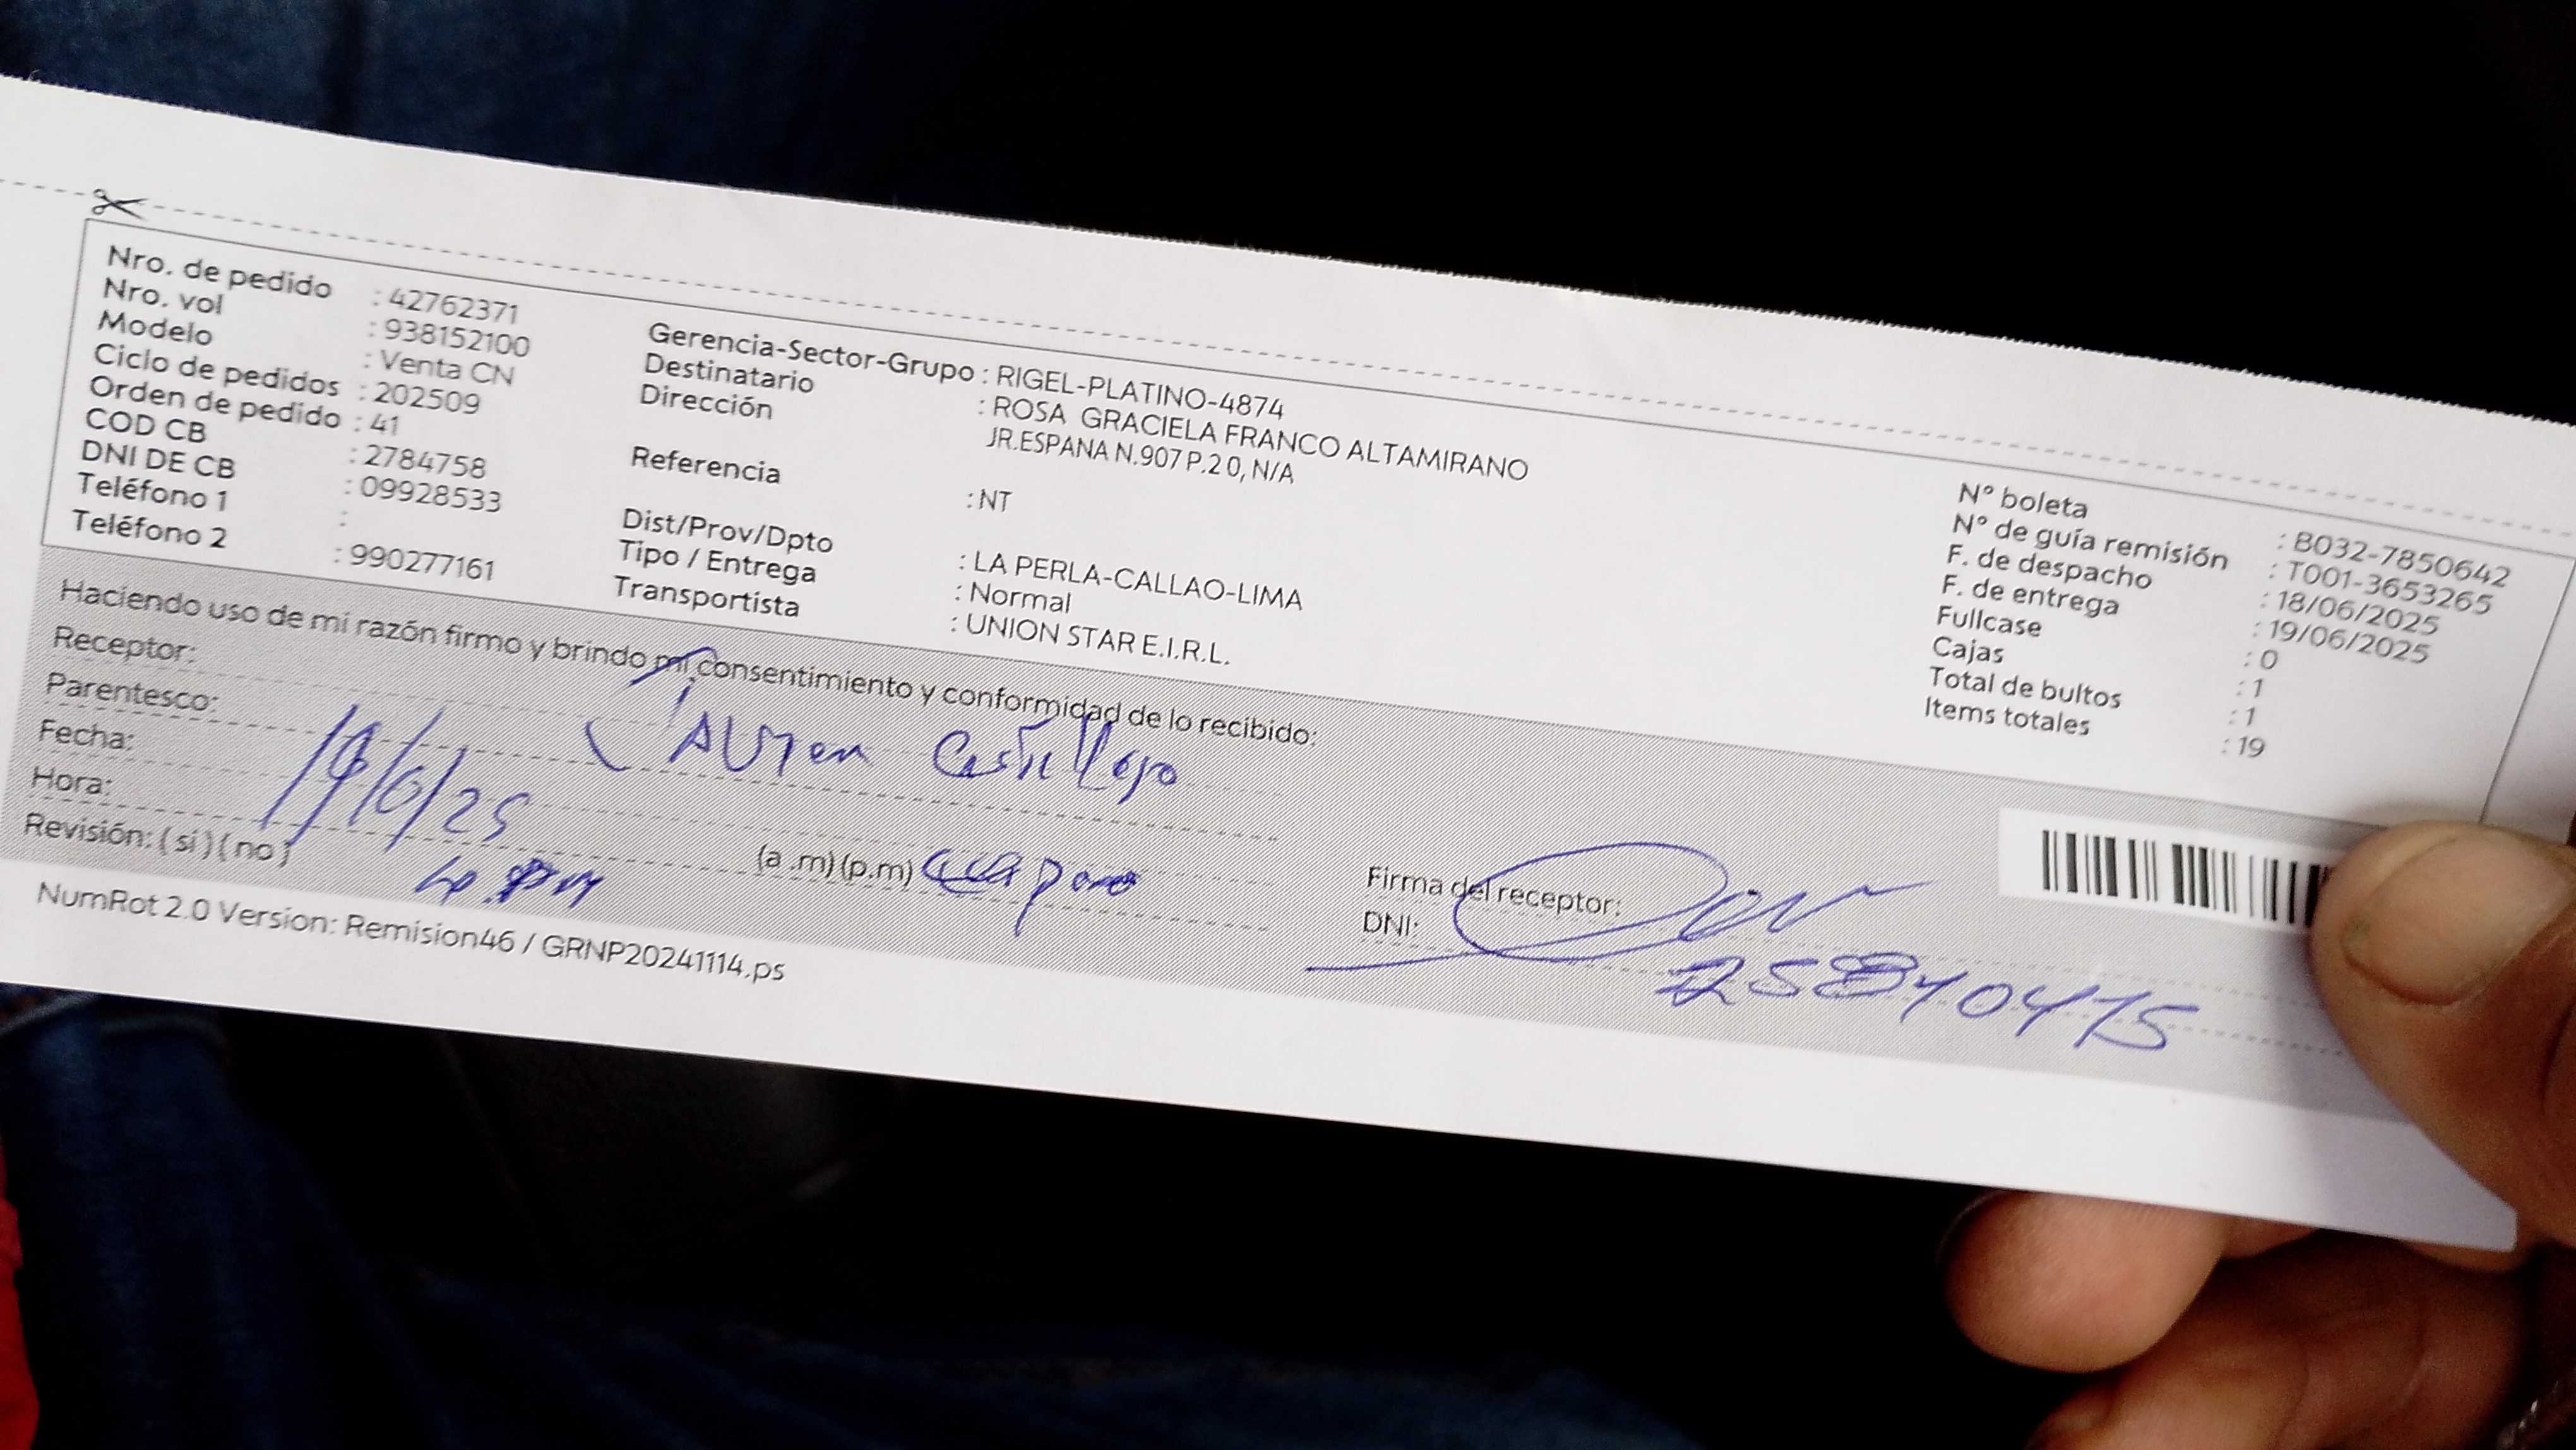 Nro. de pedido : 42762371
Nro. vol : 938152100
Modelo : Venta CN
Ciclo de pedidos : 202509
Orden de pedido : 41
COD CB : 2784758
DNI DE CB : 09928533
Teléfono 1 :
Teléfono 2 : 990277161
Gerencia-Sector-Grupo : RIGEL-PLATINO-4874
Destinatario : ROSA GRACIELA FRANCO ALTAMIRANO
Dirección JR.ESPANA N.907 P.2 0, N/A
Referencia : NT
Dist/Prov/Dpto : LA PERLA-CALLAO-LIMA
Tipo / Entrega : Normal
Transportista : UNION STAR E.I.R.L.
N° boleta : B032-7850642
N° de guía remisión : T001-3653265
F. de despacho : 18/06/2025
F. de entrega : 19/06/2025
Fullcase : 0
Cajas : 1
Total de bultos : 1
Items totales : 19
Haciendo uso de mi razón firmo y brindo mi consentimiento y conformidad de lo recibido:
Receptor:
Parentesco:
Fecha: 19/6/25
Hora: (a .m) (p.m)
Revisión: ( si ) ( no )
Firma del receptor:
DNI:
NumRot 2.0 Version: Remision46 / GRNP20241114.ps